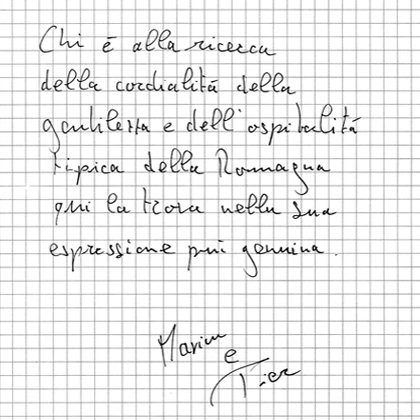 Chi è alla ricerca
della cordialità della
gentilezza e dell'ospitalità
tipica della Romagna
qui la trova nella sua
espressione più genuina.
e
Pier